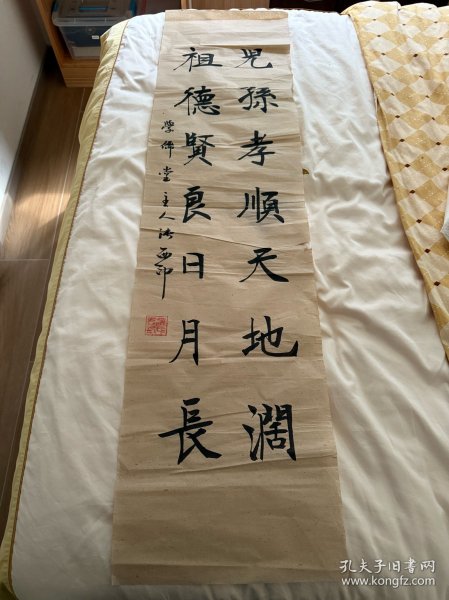 兒孫孝順天地濶
祖德賢良日月長
學儒堂主人
孔夫子旧书网
www.kongfz.com